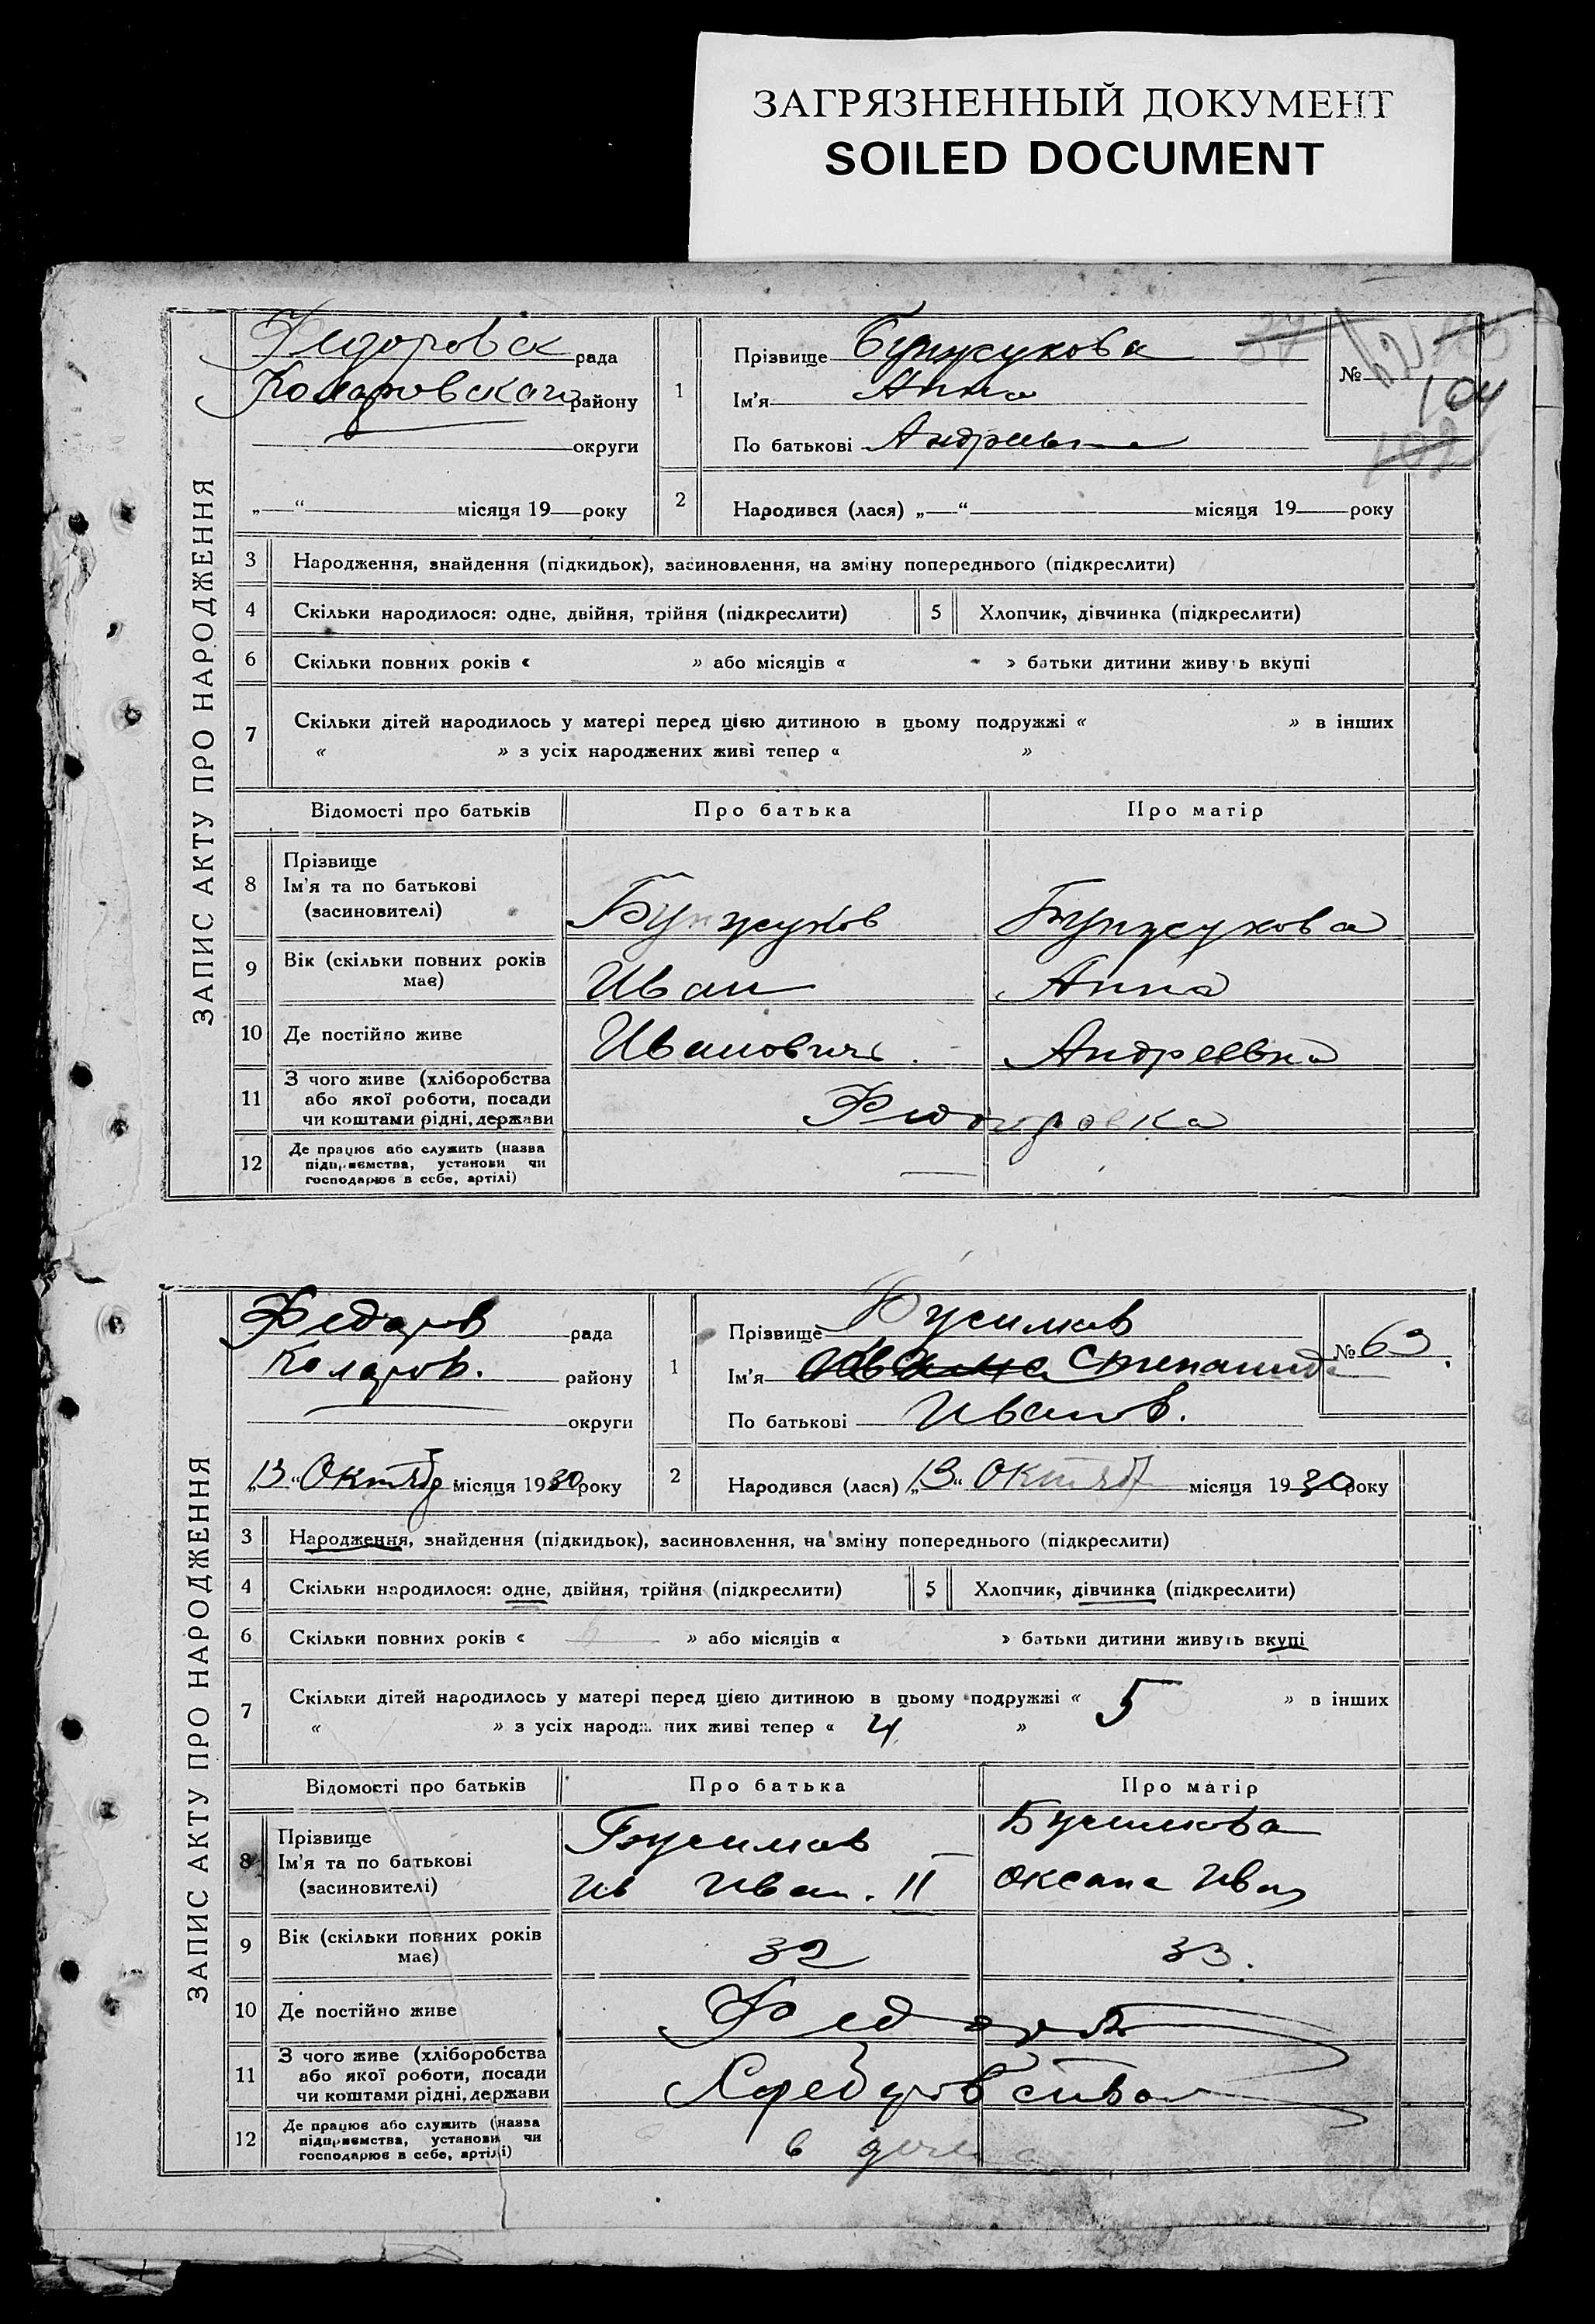 ЗАГРЯЗНЕННЫЙ ДОКУМЕНТ
SOILED DOCUMENT
ЗАПИС АКТУ ПРО НАРОДЖЕННЯ
Федоровск рада
Коларовского району
округи
„ “ місяця 19 року
1
Прізвище Бунжукова
Ім'я Анна
По батькові Андреевна
№ 104
2
Народився (лася) „ “ місяця 19 року
3 Народження, знайдення (підкидьок), засиновлення, на зміну попереднього (підкреслити)
4 Скільки народилося: одне, двійня, трійня (підкреслити) 5 Хлопчик, дівчинка (підкреслити)
6 Скільки повних років « » або місяців « » батьки дитини живуть вкупі
7 Скільки дітей народилось у матері перед цією дитиною в цьому подружжі « » в інших
« » з усіх народжених живі тепер « »
Відомості про батьків Про батька Про матір
8 Прізвище
Ім'я та по батькові
(засиновителі)
Бунжуков Бунжукова
9 Вік (скільки повних років
має)
Иван Анна
10 Де постійно живе Иванович Андреевна
11 З чого живе (хліборобства
або якої роботи, посади
чи коштами рідні, держави
Федоровка
12 Де працює або служить (назва
підприємства, установи чи
господарює в себе, артілі)
ЗАПИС АКТУ ПРО НАРОДЖЕННЯ
Федоров рада
Коларов. району
округи
„13“ Октяб місяця 1930 року
1
Прізвище Бусилов
Ім'я Степанида
По батькові Иванов.
№ 63.
2
Народився (лася) „13“ Октяб місяця 1930 року
3 Народження, знайдення (підкидьок), засиновлення, на зміну попереднього (підкреслити)
4 Скільки народилося: одне, двійня, трійня (підкреслити) 5 Хлопчик, дівчинка (підкреслити)
6 Скільки повних років « » або місяців « » батьки дитини живуть вкупі
7 Скільки дітей народилось у матері перед цією дитиною в цьому подружжі « 5 » в інших
« » з усіх народжених живі тепер « 4 »
Відомості про батьків Про батька Про матір
8 Прізвище
Ім'я та по батькові
(засиновителі)
Бусилов Бусилова
Ив Иван. II Оксана Иван
9 Вік (скільки повних років
має)
32 33.
10 Де постійно живе Федоров
11 З чого живе (хліборобства
або якої роботи, посади
чи коштами рідні, держави
12 Де працює або служить (назва
підприємства, установи чи
господарює в себе, артілі)
в